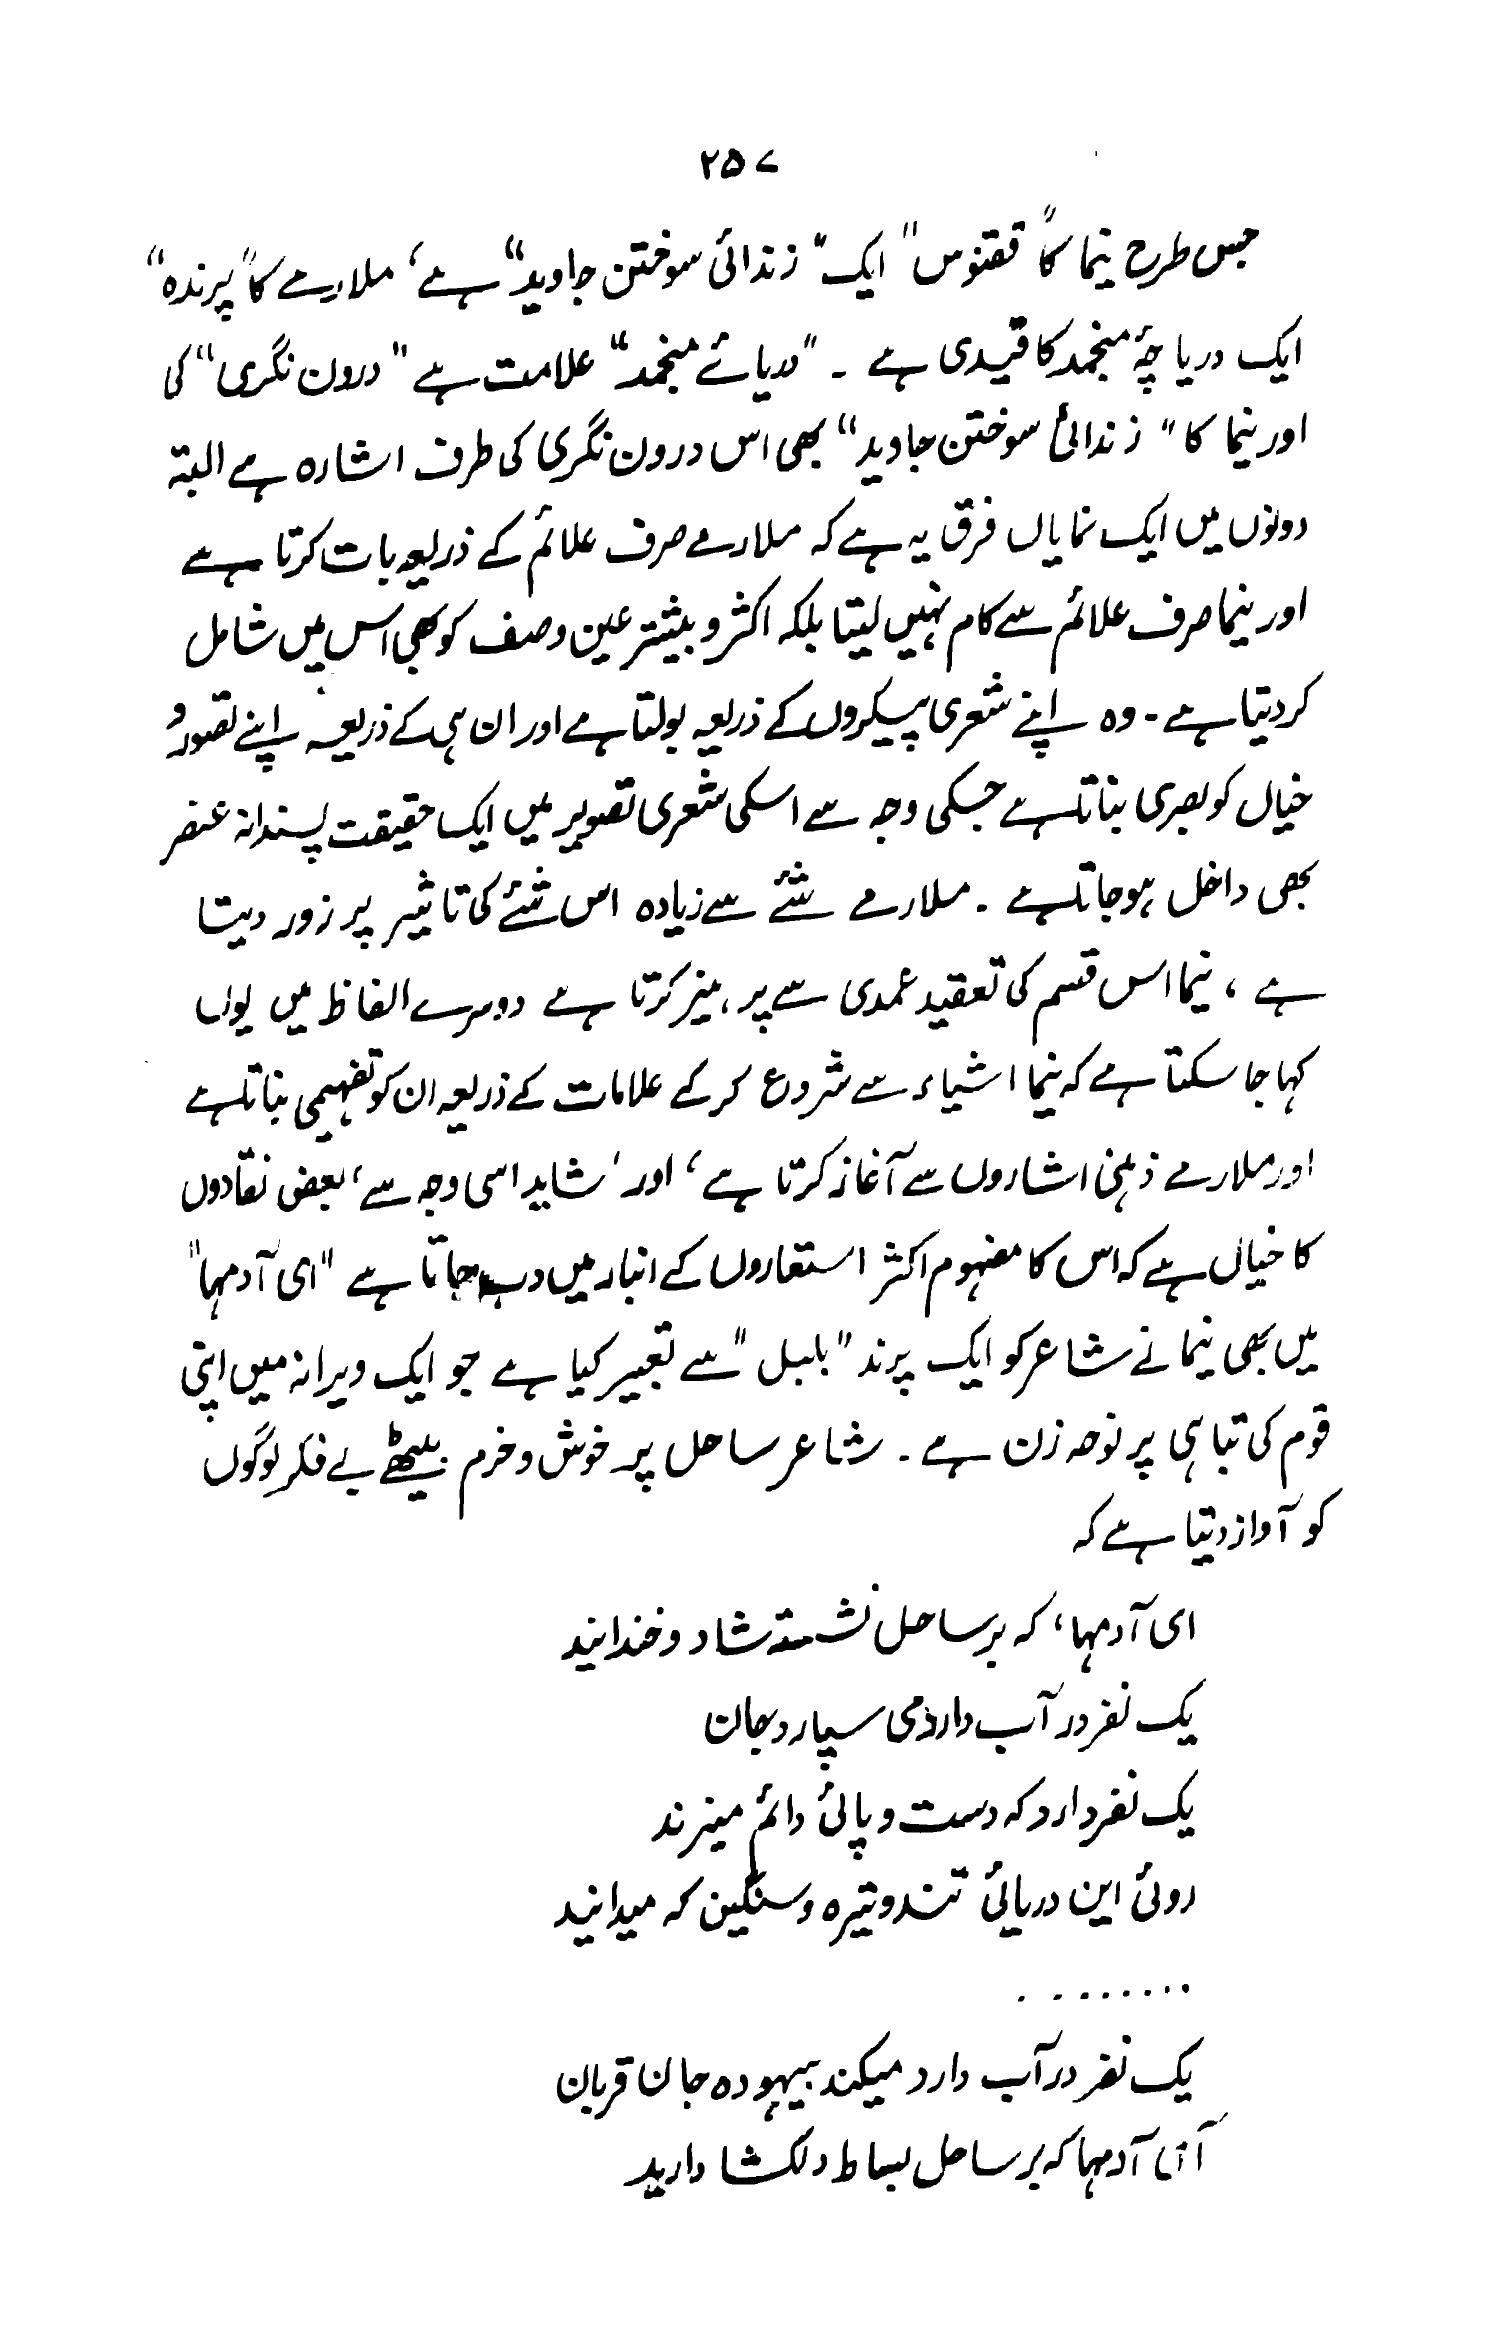 ۲۵۷
جس طرح نیما کا "ققنوس" ایک "زندائی سوختن جاوید" ہے، ملارمے کا "پرندہ"
ایک دریاچۂ منجمد کا قیدی ہے ۔ "دریائے منجمد" علامت ہے "درون نگری" کی
اور نیما کا "زندائی سوختن جاوید" بھی اس درون نگری کی طرف اشارہ ہے البتہ
دونوں میں ایک نمایاں فرق یہ ہے کہ ملارمے صرف علائم کے ذریعہ بات کرتا ہے
اور نیما صرف علائم سے کام نہیں لیتا بلکہ اکثر و بیشتر عین وصف کو بھی اس میں شامل
کر دیتا ہے ۔ وہ اپنے شعری پیکروں کے ذریعہ بولتا ہے اور ان ہی کے ذریعہ اپنے تصور و
خیال کو بصری بناتا ہے جسکی وجہ سے اسکی شعری تصویر میں ایک حقیقت پسندانہ عنصر
بھی داخل ہو جاتا ہے ۔ ملارمے شئے سے زیادہ اس شئے کی تاثیر پر زور دیتا
ہے ، نیما اس قسم کی تعقید عمدی سے پرہیز کرتا ہے دوسرے الفاظ میں یوں
کہا جا سکتا ہے کہ نیما اشیاء سے شروع کر کے علامات کے ذریعہ ان کو تفہیمی بناتا ہے
اور ملارمے ذہنی اشاروں سے آغاز کرتا ہے، اور، شاید اسی وجہ سے، بعض نقادوں
کا خیال ہے کہ اس کا مفہوم اکثر استعاروں کے انبار میں دب جاتا ہے "ای آدمہا"
میں بھی نیما نے شاعر کو ایک پرند "بلبل" سے تعبیر کیا ہے جو ایک ویرانہ میں اپنی
قوم کی تباہی پر نوحہ زن ہے ۔ شاعر ساحل پر خوش و خرم بیٹھے بے فکر لوگوں
کو آواز دیتا ہے کہ
ای آدمہا، کہ بر ساحل نشستہ شاد و خندانید
یک نفر در آب دارد می سپارد جان
یک نفر دارد کہ دست و پائی دائم میزند
روئی این دریائی تند و تیرہ و سنگین کہ میدانید
. . . . . . . .
یک نفر در آب دارد میکند بیہودہ جان قربان
آی آدمہا کہ بر ساحل بساط دلکشا دارید